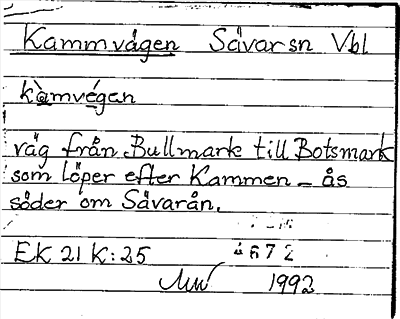 Kammvägen Sävarsn Vbl
kàmvégan
väg från Bullmark till Botsmark
som löper efter Kammen – ås
söder om Sävarån.
EK 21 K:25 4672
1992